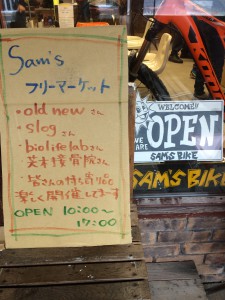 Sam's
フリーマーケット
・old newさん
・slogさん
・biolifelabさん
茨木接骨院さん
・皆さんの持ち寄り品
楽しく開催してまーす
OPEN 10:00〜
17:00
WELCOME!!
WE ARE
OPEN
SAM'S BIKE
SAM'S BIKE